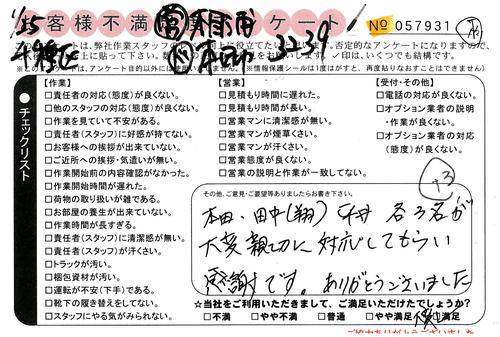 お客様不満 アンケート No 057931
このアンケートは、弊社作業スタッフの
否定的なアンケートになりますので、
✓印は、いくつでも結構です。
※情報保護シールは1度はがすと、再度貼りなおすことはできません
1/25
チェックリスト
【作業】
□責任者の対応(態度)が良くない。
□他のスタッフの対応(態度)が良くない。
□作業を見ていて不安がある。
□責任者(スタッフ)に好感が持てない。
□お客様への挨拶が出来ていない。
□ご近所への挨拶・気遣いが無い。
□作業開始前の内容確認がなかった。
□作業開始時間が遅れた。
□荷物の取り扱いが雑である。
□お部屋の養生が出来ていない。
□作業時間が長すぎる。
□責任者(スタッフ)に清潔感が無い。
□責任者(スタッフ)が汗くさい。
□トラックが汚い。
□梱包資材が汚い。
□運転が不安(下手)である。
□靴下の履き替えをしてない。
□スタッフにやる気がみられない。
【営業】
□見積もり時間に遅れた。
□見積もり時間が長い。
□営業マンに清潔感が無い。
□営業マンが煙草くさい。
□営業マンが汗くさい。
□営業態度が良くない。
□営業の説明と作業が一致してない。
【受付・その他】
□電話の対応が良くない。
□オプション業者の説明
・作業が良くない。
□オプション業者の対応
(態度)が良くない。
+3
その他、ご意見・ご要望等ありましたらお書き下さい。
本田・田中(翔) 各3名が
大変親切に対応してもらい
感謝です。ありがとうございました
☆当社をご利用いただきまして、ご満足いただけたでしょうか?
□不満 □やや不満 □普通 □やや満足 □満足
ご協力ありがとうございました